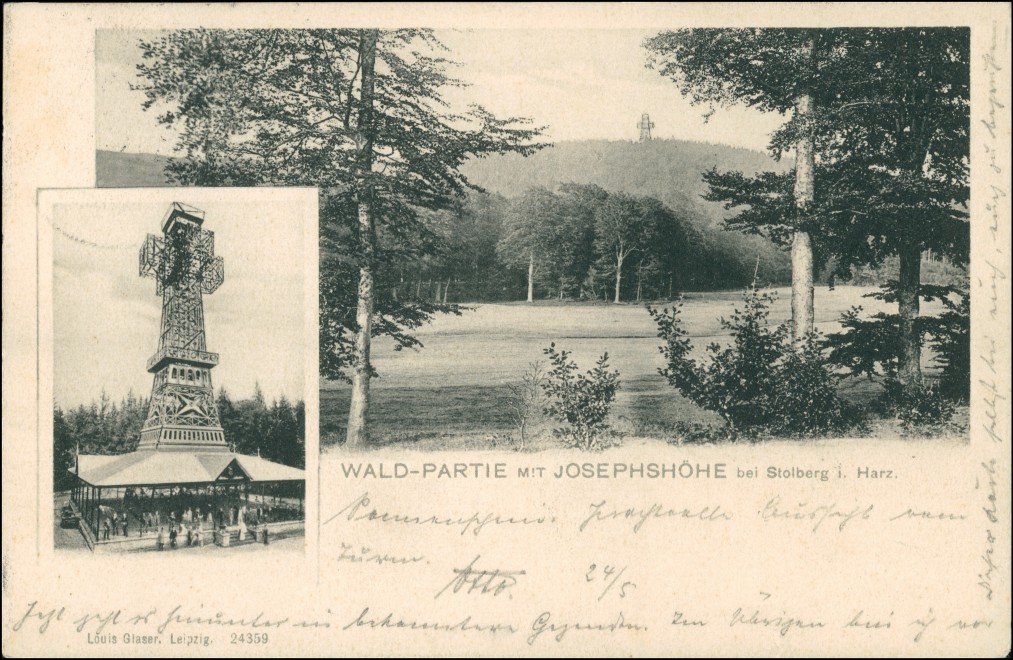 WALD-PARTIE MIT JOSEPHSHÖHE bei Stolberg i. Harz.
Sonnenschein. Prachtvolle Aussicht vom
Turm. Otto. 24/5
Jetzt geht es hinunter in bekanntere Gegenden. Im Übrigen bin ich
Louis Glaser, Leipzig. 24359